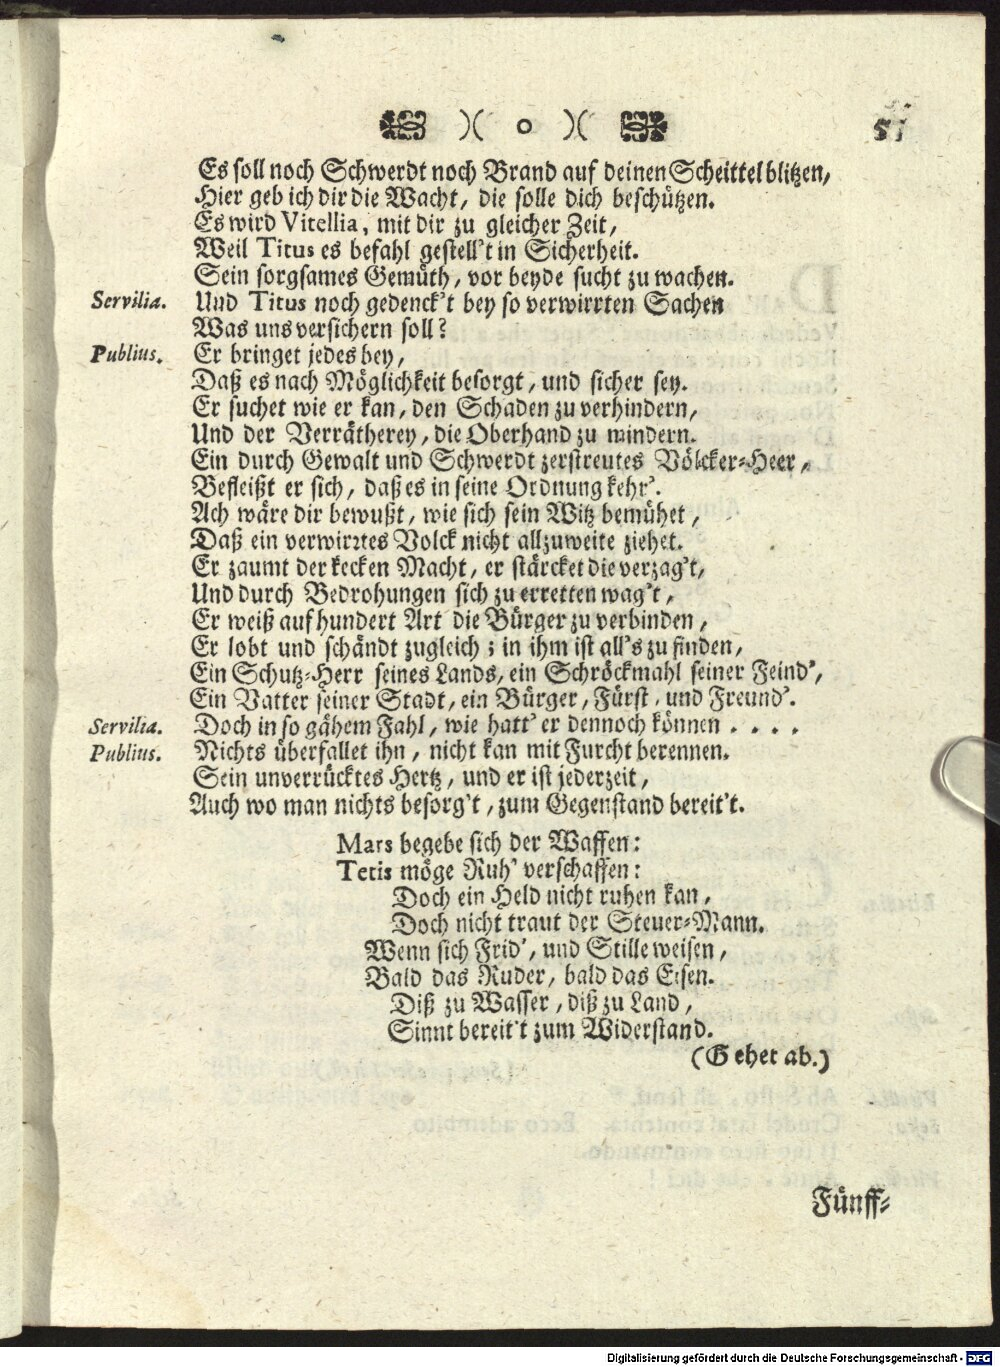 )( o )( 51
Es soll noch Schwerdt noch Brand auf deinen Scheittel blitzen,
Hier geb ich dir die Wacht, die solle dich beschützen.
Es wird Vitellia, mit dir zu gleicher Zeit,
Weil Titus es befahl gestell't in Sicherheit.
Sein sorgsames Gemüth, vor beyde sucht zu wachen.
Servilia. Und Titus noch gedenck't bey so verwirrten Sachen
Was uns versichern soll?
Publius. Er bringet jedes bey,
Daß es nach Möglichkeit besorgt, und sicher sey.
Er suchet wie er kan, den Schaden zu verhindern,
Und der Verrätherey, die Oberhand zu mindern.
Ein durch Gewalt und Schwerdt zerstreutes Völcker-Heer,
Befleißt er sich, daß es in seine Ordnung kehr'.
Ach wäre dir bewußt, wie sich sein Witz bemühet,
Daß ein verwirrtes Volck nicht allzuweite ziehet.
Er zaumt der kecken Macht, er stärcket die verzag't,
Und durch Bedrohungen sich zu erretten wag't,
Er weiß auf hundert Art die Bürger zu verbinden,
Er lobt und schändt zugleich; in ihm ist all's zu finden,
Ein Schutz-Herr seines Lands, ein Schröckmahl seiner Feind',
Ein Vatter seiner Stadt, ein Bürger, Fürst, und Freund'.
Servilia. Doch in so gähem Fahl, wie hatt' er dennoch können . . . .
Publius. Nichts überfallet ihn, nicht kan mit Furcht berennen.
Sein unverrücktes Hertz, und er ist jederzeit,
Auch wo man nichts besorg't, zum Gegenstand bereit't.
Mars begebe sich der Waffen:
Tetis möge Ruh' verschaffen:
Doch ein Held nicht ruhen kan,
Doch nicht traut der Steuer-Mann.
Wenn sich Frid', und Stille weisen,
Bald das Ruder, bald das Eisen.
Diß zu Wasser, diß zu Land,
Sinnt bereit't zum Widerstand.
(Gehet ab.)
Fünff-
Digitalisierung gefördert durch die Deutsche Forschungsgemeinschaft - DFG